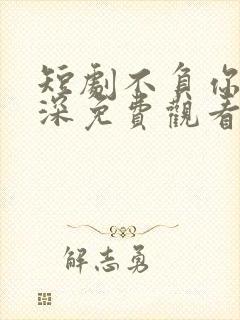 短劇不負你
深免費觀看
解志勇